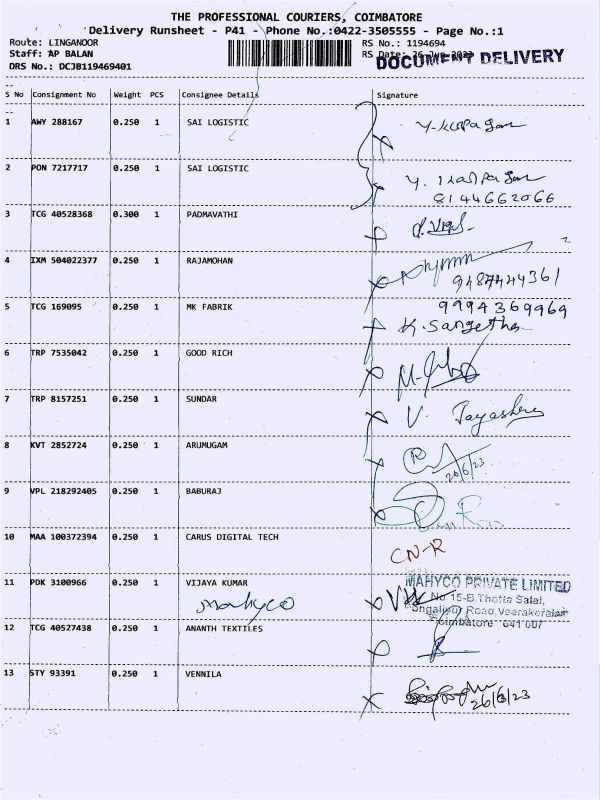 THE PROFESSIONAL COURIERS, COIMBATORE
Delivery Runsheet - P41 - Phone No.:0422-3505555 - Page No.:1
Route: LINGANOOR RS No.: 1194694
Staff: AP BALAN RS Date: 26-Jun-2023
DOCUMENT DELIVERY
DRS No.: DCJB119469401
S No Consignment No Weight PCS Consignee Details Signature
1 AWY 288167 0.250 1 SAI LOGISTIC
2 PON 7217717 0.250 1 SAI LOGISTIC
8144662066
3 TCG 40528368 0.300 1 PADMAVATHI
4 IXM 504022377 0.250 1 RAJAMOHAN
9487444361
5 TCG 169095 0.250 1 MK FABRIK 9994369969
K. Sangetha
6 TRP 7535042 0.250 1 GOOD RICH
7 TRP 8157251 0.250 1 SUNDAR
V. Jayashree
8 KVT 2852724 0.250 1 ARUMUGAM
26/6/23
9 VPL 218292405 0.250 1 BABURAJ
10 MAA 100372394 0.250 1 CARUS DIGITAL TECH
CN-R
11 PDK 3100966 0.250 1 VIJAYA KUMAR MAHYCO PRIVATE LIMITED
mahyco No 15-B, Thotta Salai,
Road, Veerakeralam
Coimbatore - 641 007
12 TCG 40527438 0.250 1 ANANTH TEXTILES
13 STY 93391 0.250 1 VENNILA
26/6/23